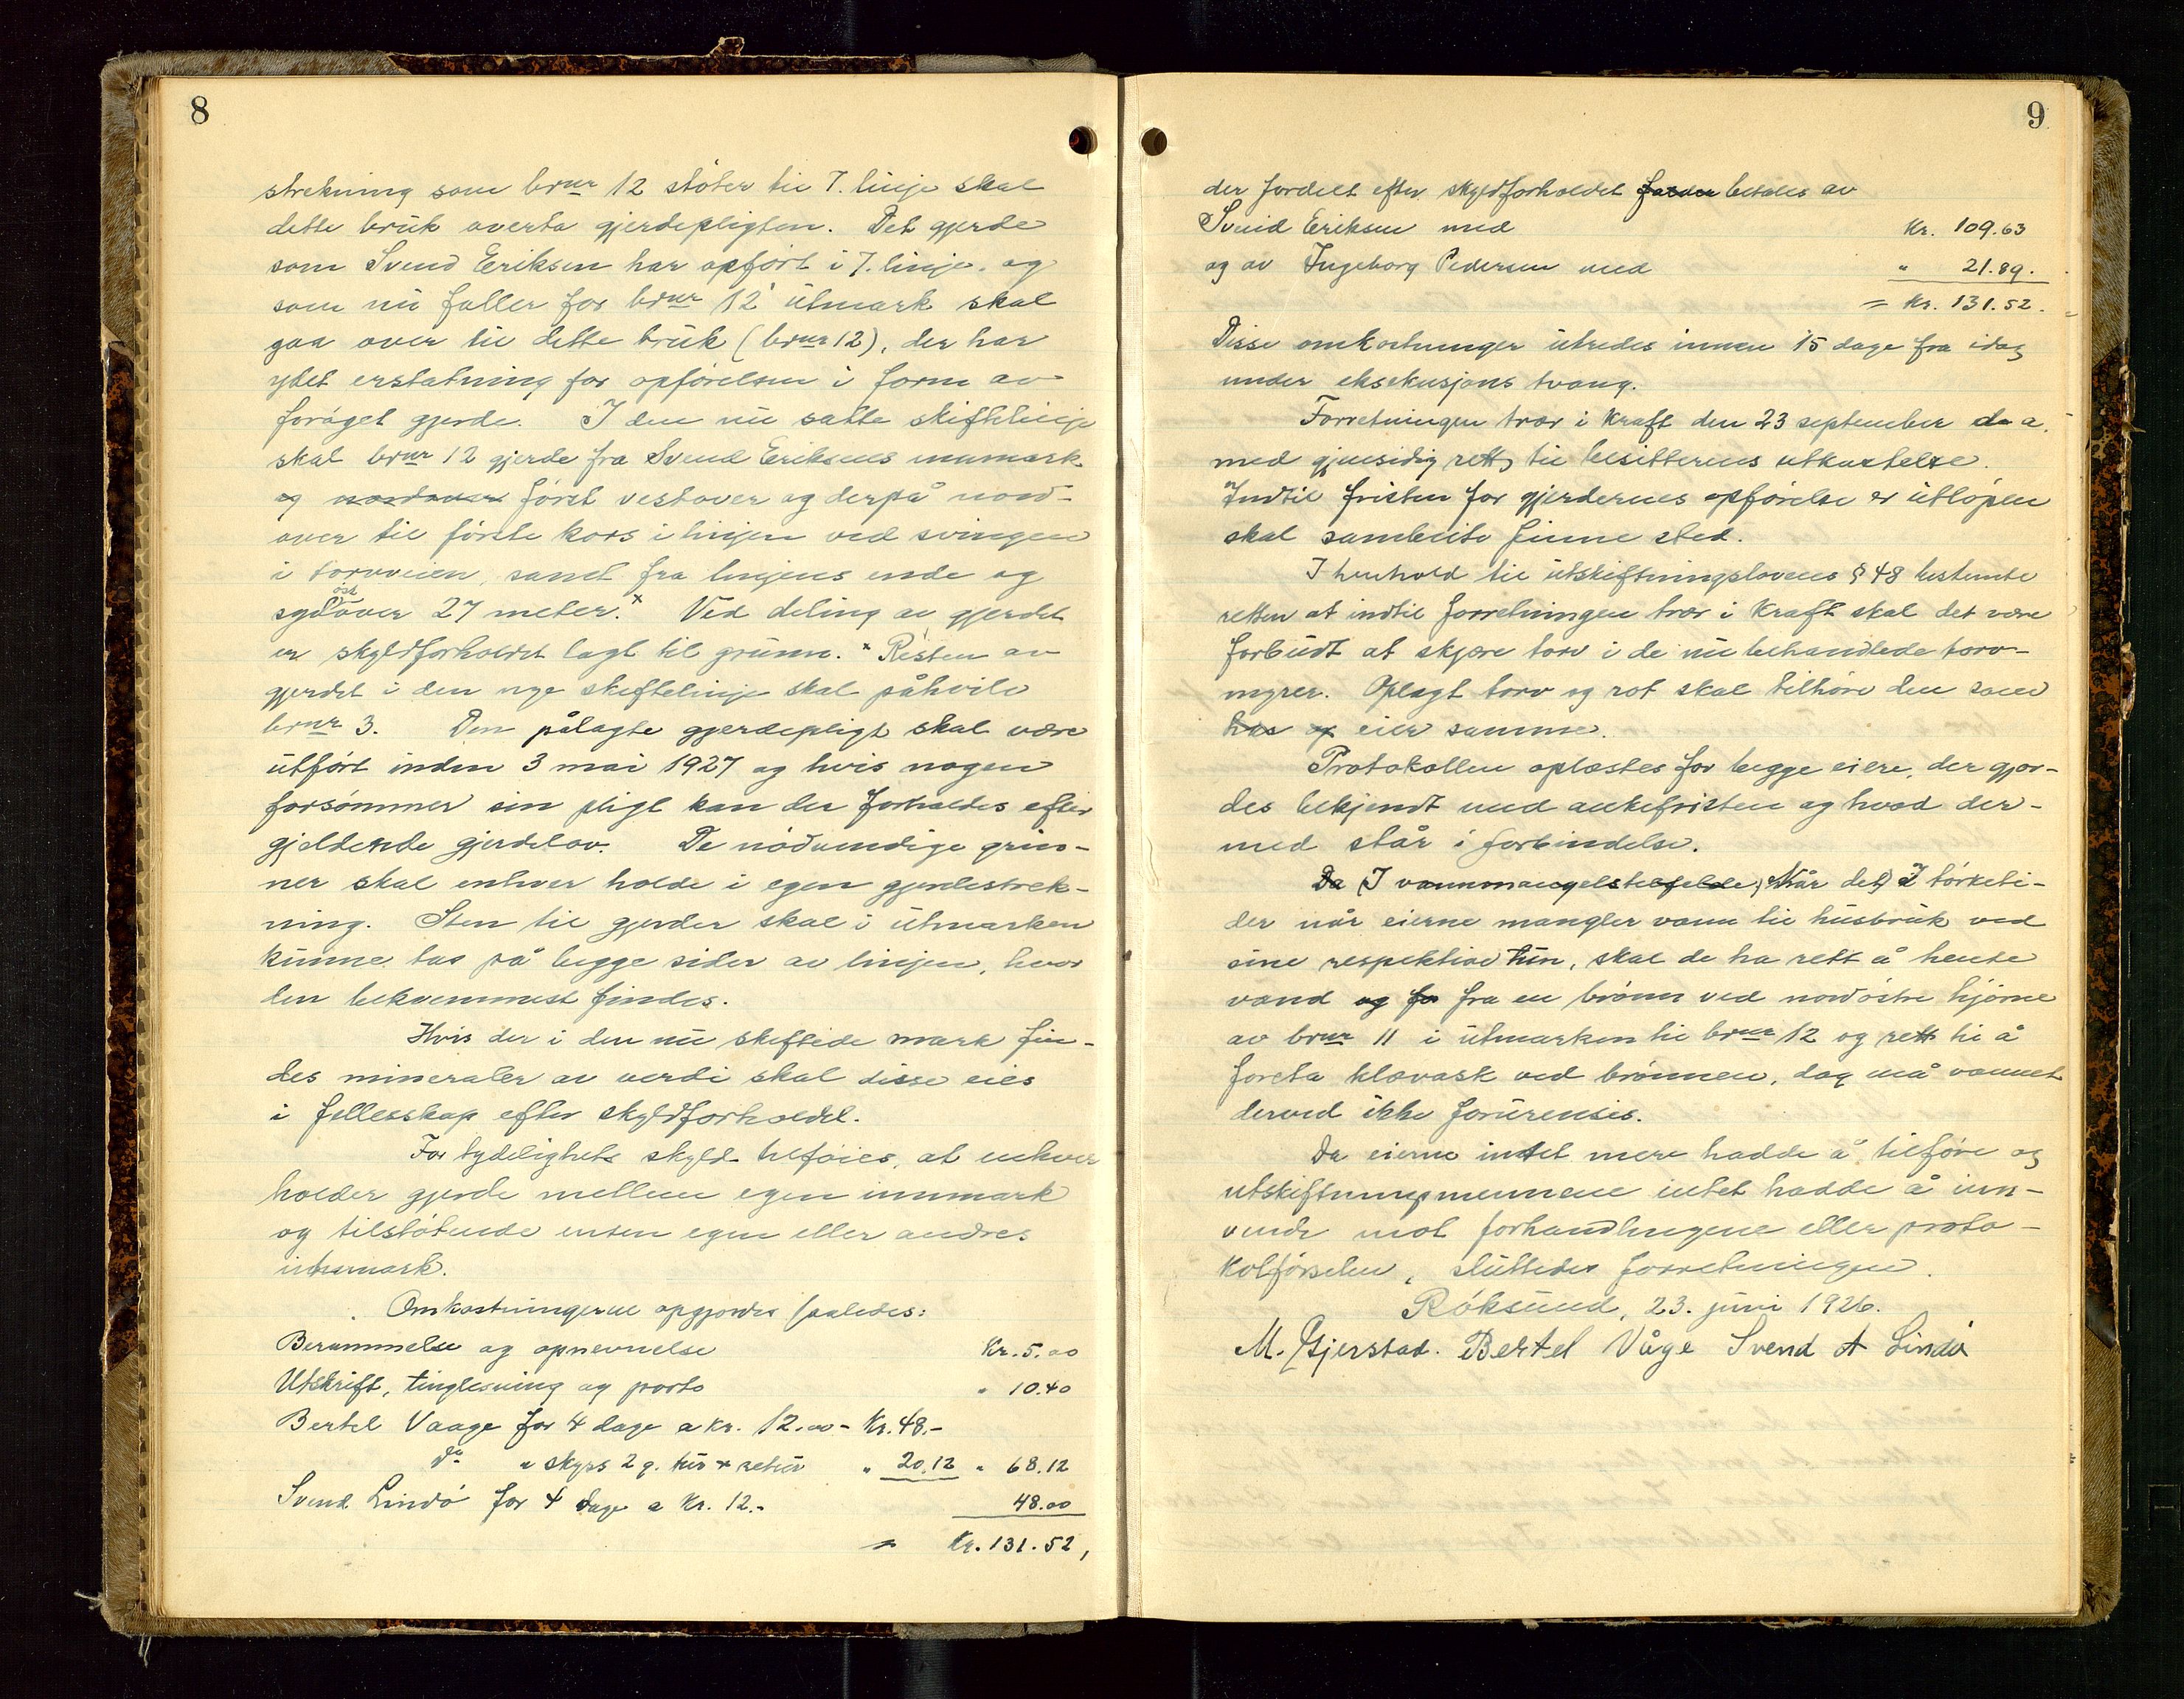 8
strekning som brnr 12 støter til 7. linje skal
dette bruk averta gjerdepligten. Det gjerde
som Svend Eriksen har opført i 7. linje, og
som nu faller for brnr 12 utmark skal
gaa over til dette bruk (brnr 12), der har
ydet erstatning for opførelsen i form av
forøget gjerde. I den nu satte skiftelinje
skal brnr 12 gjerde fra Svend Eriksens innmark
og nordover først vestover og derpå nord-
over til første kors i linjen ved svingen
i torvveien, samt fra linjens ende og
øst
sydover 27 meter.x Ved deling av gjerdet
er skyldforholdet lagt til grunn. x Resten av
gjerdet i den nye skiftelinje skal påhvile
brnr 3. Den pålagte gjerdepligt skal være
utført inden 3 mai 1927 og hvis nogen
forsømmer sin pligt kan der forholdes efter
gjeldende gjerdelov. De nødvendige grin-
ner skal enhver holde i egen gjerdestrek-
ning. Sten til gjerder skal i utmarken
kunne tas på begge sider av linjen, hvor
den bekvemmest findes.
Hvis der i den nu skiftede mark fin-
des mineraler av verdi skal disse eies
i fellesskap efter skyldforholdet.
For tydelighets skyld tilføies, at enhver
holder gjerde mellem egen innmark
og tilstøtende enten egen eller andres
utmark.
Omkostningerne opgjordes saaledes:
Berammelse og opnevnelse Kr. 5.00
Utskrift, tinglesning og porto " 10.40
Bertel Vaage for 4 dage a kr. 12.00 - Kr. 48.-
do " skyss 2 g. tur + retur " 20.12 " 68.12
Svend Lindø for 4 dage a Kr. 12.- 48.00
= Kr. 131.52,
9
der fordelt efter skyldforholdet betales av
Svend Eriksen med Kr. 109.63
og av Ingeborg Pedersen med " 21.89.
= Kr. 131.52.
Disse omkostninger utredes innen 15 dage fra idag
under eksekusjons tvang.
Forretningen trær i kraft den 23 september d. a.
med gjensidig rett til besitterens utkastelse.
Indtil fristen for gjerdernes opførelse er utløpen
skal sambeite finne sted.
I henhold til utskiftningslovens § 48 bestemte
retten at indtil forretningen trær i kraft skal det være
forbudt at skjære torv i de nu behandlede torv-
myrer. Oplagt torv og rot skal tilhøre den som
har og eier samme.
Protokollen oplæstes for begge eiere, der gjor-
des bekjendt med ankefristen og hvad der-
med står i forbindelse.
Da (I vannmangelstilfelde, Når det) I tørketi-
der når eierne mangler vann til husbruk ved
sine respektive tun, skal de ha rett å hente
vand og for fra en brønn ved nordøstre hjørne
av brnr 11 i utmarken til brnr 12 og rett til å
foreta klævask ved brønnen, dog må vannet
derved ikke forurenses.
Da eierne intet mere hadde å tilføre og
utskiftningsmennene intet hadde å inn-
vende mot forhandlingene eller proto-
kolførselen, sluttedes forretningen.
Røksund, 23. juni 1926.
M. Gjerstad. Bertel Våge Svend A Lindø